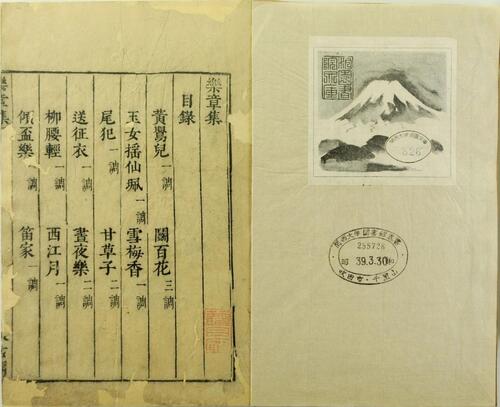 樂章集
目錄
黃鶯兒 一調 鬭百花 三調
玉女揺仙珮 一調 雪梅香 一調
尾犯 一調 甘草子 二調
送征衣 一調 晝夜樂 二調
柳腰輕 一調 西江月 一調
傾盃樂 一調 笛家 一調
樂章集
828
255728
昭 39.3.30 和
吹田市・千里山